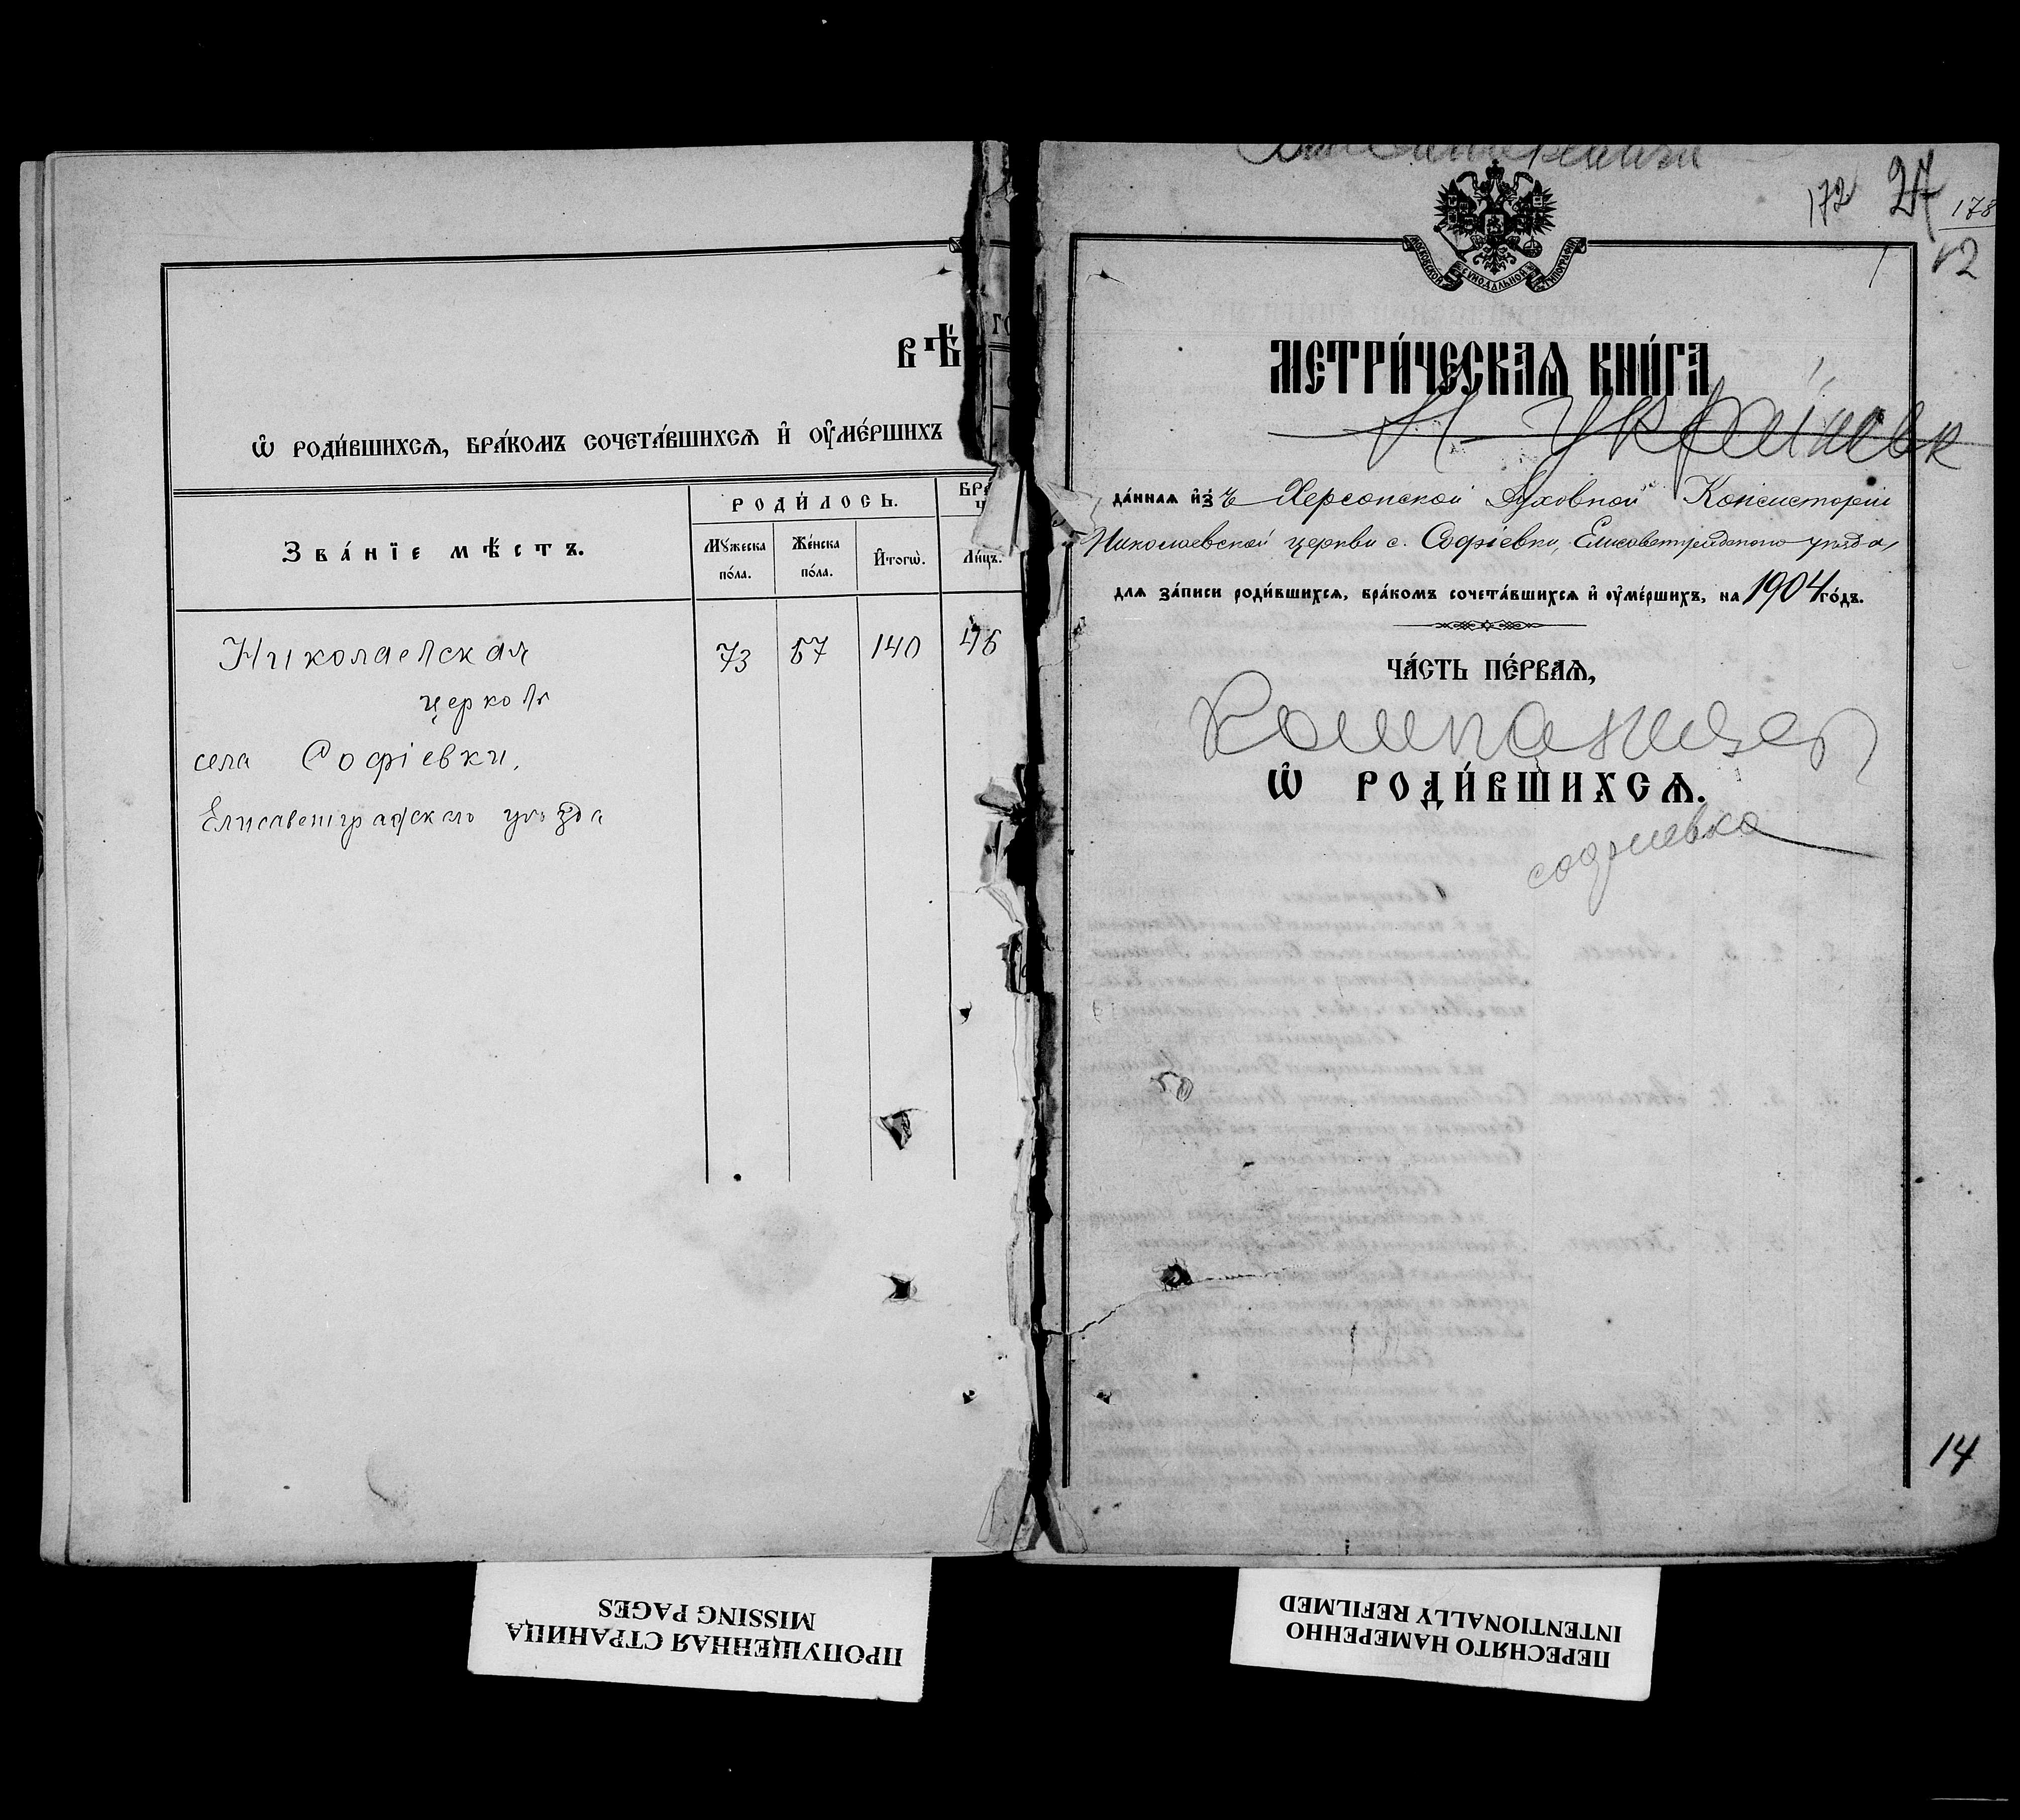 вѣ
ѡ҆ роди́вшихсѧ, бра́комъ сочета́вшихсѧ и҆ ᲂу҆ме́ршихъ
Зва́нїе мѣ́стъ.
роди́лось.
Мꙋжеска по́ла.
Же́нска по́ла.
И҆тогѡ̀.
бра
ч
Ли́цъ.
Николаевская 73 67 140 46
церковь
села Софіевки,
Елисаветградскаго уѣзда
172 27 178
12
московской сѵнодальной типографіи
метри́ческаѧ кни́га
Н-Украінск
да́нная и҆з̾ъ Херсонской Духовной Консисторіи
Николаевской церкви с. Софіевки, Елисаветградскаго уѣзда,
для за́писи роди́вшихся, бра́комъ сочета́вшихся и҆ ᲂу҆ме́ршихъ, на 1904 го́дъ.
ча́сть пе́рваѧ,
Компанiев
ѡ҆ роди́вшихсѧ.
софиевка
50
14
ПРОПУЩЕННАЯ СТРАНИЦА
MISSING PAGES
ПЕРЕСНЯТО НАМЕРЕННО
INTENTIONALLY REFILMED